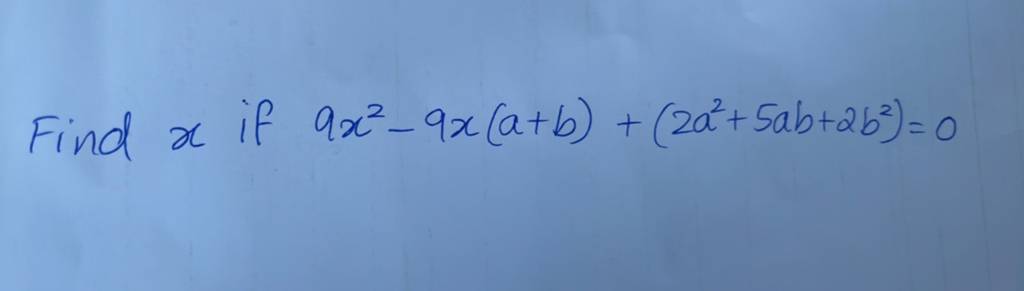 Find x if 9x² - 9x(a+b) + (2a² + 5ab + 2b²) = 0